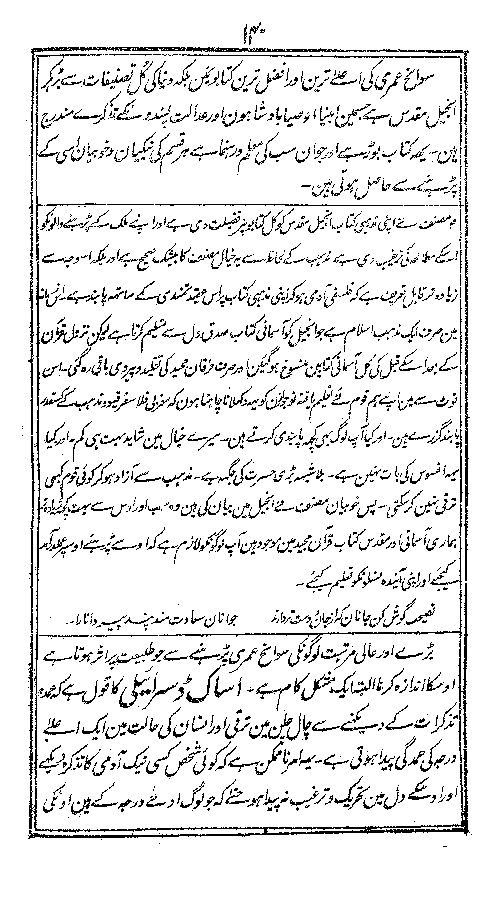 ۱۴۰
سوانح عمری کی اعلےٰ ترین اور افضل ترین کتابونمین بلکہ دنیا کی کُل تصنیفات سے بڑھکر
انجیل مقدس ہے جسمین انبیا اوصیا بادشاہون اور عدالت پسندون کے تذکرے مندرج
ہین۔ یہہ کتاب بوڑہے اور جوان سب کی معلم و رہنما ہے ہر قسم کی نیکیان و خوبیان اسی کے
پڑہنے سے حاصل ہوتی ہین۔
مصنف نے اپنی مذہبی کتاب انجیل مقدس کو کل کتابونپر فضیلت دی ہے اور اپنے ملک کے پڑہنے والونکو
اسکے مطالعہ کی ترغیب دی ہے۔ مذہب کے لحاظ سے یہ خیال مصنف کا بیشک صحیح ہے اور بلکہ اسوجہ سے
زیادہ تر قابل تعریف ہے کہ فلسفی آدمی ہوکر اپنی مذہبی کتاب پر اس عقیدتمندی کے ساتھہ پابند ہے
مین صرف ایک مذہب اسلام ہے جو انجیل کو آسمانی کتاب صدق دل سے تسلیم کرتا ہے لیکن نزول قرآن
کے بعد اسکے قبل کی کل آسمانی کتابین منسوخ ہوگئین اور صرف فرقان حمید کی تقلید و پیروی باقی رہ گئی۔ اس
نوٹ سے مین اپنے ہم قوم نئے تعلیم یافتہ نوجوانونکو یہہ دکھلانا چاہتا ہون کہ مغربی فلاسفر خود مذہب کے کسقدر
پابند گزرے ہین۔ اور کیا آپ لوگ بھی کچہہ پابندی کرتے ہین۔ میرے خیال مین شاید بہت ہی کم۔ اور کیا
یہہ افسوس کی بات نہین ہے۔ بلاشبہ بڑی حسرت کی جگہہ ہے۔ مذہب سے آزاد ہوکر کوئی قوم کبھی
ترقی نہین کرسکتی۔ پس جو خوبیان مصنف نے انجیل مین بیان کی ہین وہ سب اور اوس سے بہت کچہہ زیادہ
ہماری آسمانی اور مقدس کتاب قرآن مجید مین موجود ہین آپ لوگونکو لازم ہے کہ اوسے پڑہئے اوسپر عملدرآمد
کیجئے اور اپنی آیندہ نسلونکو تعلیم کیجئے۔
نصیحت گوش کن جانان کہ از جان دوست تر دارند جوانان سعادت مند پند پیر دانا را۔
بڑے اور عالی مرتبت لوگونکی سوانح عمری پڑہنے سے جو طبیعت پر اثر ہوتا ہے
اوسکا اندازہ کرنا البتہ ایک مشکل کام ہے۔ اساک ڈسرائیلی کا قول ہے کہ عمدہ
تذکرات کے دیکہنے سے چال چلن مین ترقی اور انسان کی حالت مین ایک اعلےٰ
درجہ کی عمدگی پیدا ہوتی ہے۔ یہہ امر ناممکن ہے کہ کوئی شخص کسی نیک آدمی کا تذکرہ دیکہے
اور اوسکے دل مین تحریک و ترغیب نہ پیدا ہو حتےٰ کہ جو لوگ ادنےٰ درجہ کے ہین اونکی